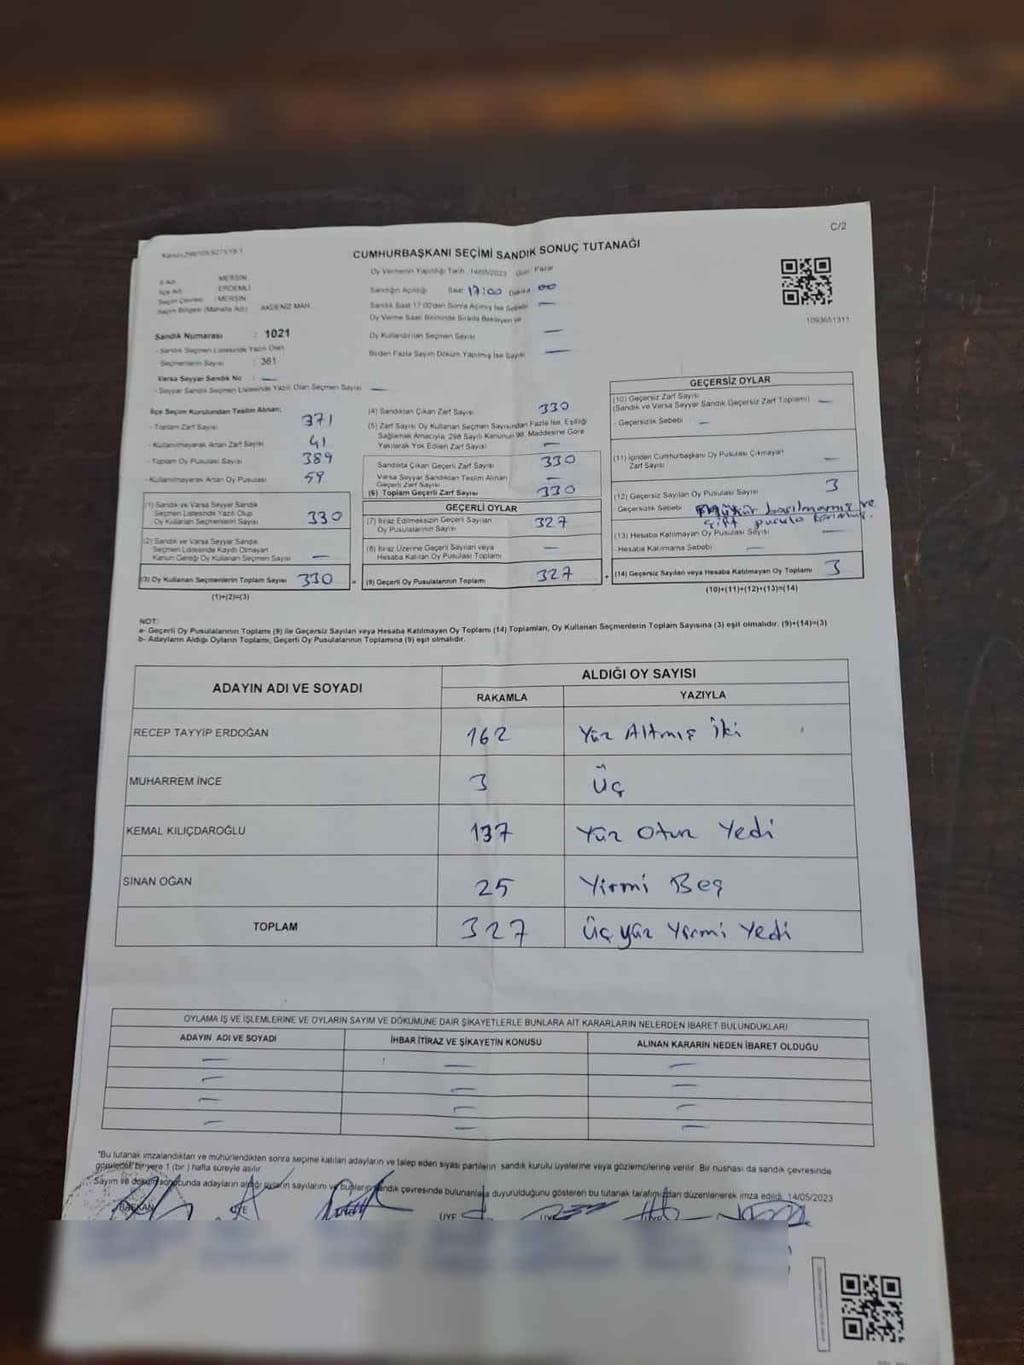 C/2
CUMHURBAŞKANI SEÇİMİ SANDIK SONUÇ TUTANAĞI
Oy Vermenin Yapıldığı Tarih 14/05/2023 Gün Pazar
İl Adı MERSİN
İlçe Adı ERDEMLİ
Seçim Çevresi : MERSİN
Seçim Bölgesi (Mahalle Adı) AKDENİZ MAH.
Sandığın Açıldığı Saat 17:00 Dakika 00
Sandık Saat 17:00'den Sonra Açılmış İse Sebebi —
Oy Verme Saati Bitiminde Sırada Bekleyen ve
Oy Kullandırılan Seçmen Sayısı —
Birden Fazla Sayım Döküm Yapılmış İse Sayısı —
1093651311
Sandık Numarası : 1021
- Sandık Seçmen Listesinde Yazılı Olan
Seçmenlerin Sayısı : 361
Varsa Seyyar Sandık No : —
- Seyyar Sandık Seçmen Listesinde Yazılı Olan Seçmen Sayısı —
İlçe Seçim Kurulundan Teslim Alınan;
- Toplam Zarf Sayısı 371
- Kullanılmayarak Artan Zarf Sayısı 41
- Toplam Oy Pusulası Sayısı 389
- Kullanılmayarak Artan Oy Pusulası 59
(1) Sandık ve Varsa Seyyar Sandık
Seçmen Listesinde Yazılı Olup
Oy Kullanan Seçmenlerin Sayısı 330
(2) Sandık ve Varsa Seyyar Sandık
Seçmen Listesinde Kaydı Olmayan
Kanun Gereği Oy Kullanan Seçmen Sayısı —
(3) Oy Kullanan Seçmenlerin Toplam Sayısı 330
(1)+(2)=(3)
(4) Sandıktan Çıkan Zarf Sayısı 330
(5) Zarf Sayısı Oy Kullanan Seçmen Sayısından Fazla İse, Eşitliği
Sağlamak Amacıyla, 298 Sayılı Kanunun 98. Maddesine Göre
Yakılarak Yok Edilen Zarf Sayısı —
Sandıkta Çıkan Geçerli Zarf Sayısı 330
Varsa Seyyar Sandıktan Teslim Alınan
Geçerli Zarf Sayısı —
(6) Toplam Geçerli Zarf Sayısı 330
GEÇERLİ OYLAR
(7) İtiraz Edilmeksizin Geçerli Sayılan
Oy Pusulası Sayısı 327
(8) İtiraz Üzerine Geçerli Sayılan veya
Hesaba Katılan Oy Pusulası Toplamı —
(9) Geçerli Oy Pusulalarının Toplamı 327
GEÇERSİZ OYLAR
(10) Geçersiz Zarf Sayısı
(Sandık ve Varsa Seyyar Sandık Geçersiz Zarf Toplamı) —
- Geçersizlik Sebebi —
(11) İçinden Cumhurbaşkanı Oy Pusulası Çıkmayan
Zarf Sayısı —
(12) Geçersiz Sayılan Oy Pusulası Sayısı 3
Geçersizlik Sebebi Mühür basılmamış ve
çift pusula
(13) Hesaba Katılmayan Oy Pusulası Sayısı —
Hesaba Katılmama Sebebi —
(14) Geçersiz Sayılan veya Hesaba Katılmayan Oy Toplamı 3
(10)+(11)+(12)+(13)=(14)
NOT:
a- Geçerli Oy Pusulalarının Toplamı (9) ile Geçersiz Sayılan veya Hesaba Katılmayan Oy Toplamı (14) Toplamları, Oy Kullanan Seçmenlerin Toplam Sayısına (3) eşit olmalıdır. (9)+(14)=(3)
b- Adayların Aldığı Oyların Toplamı, Geçerli Oy Pusulalarının Toplamına (9) eşit olmalıdır.
ADAYIN ADI VE SOYADI ALDIĞI OY SAYISI
RAKAMLA YAZIYLA
RECEP TAYYİP ERDOĞAN 162 Yüz Altmış İki
MUHARREM İNCE 3 Üç
KEMAL KILIÇDAROĞLU 137 Yüz Otuz Yedi
SİNAN OĞAN 25 Yirmi Beş
TOPLAM 327 Üç yüz Yirmi Yedi
OYLAMA İŞ VE İŞLEMLERİNE VE OYLARIN SAYIM VE DÖKÜMÜNE DAİR ŞİKAYETLERLE BUNLARA AİT KARARLARIN NELERDEN İBARET BULUNDUKLARI
ADAYIN ADI VE SOYADI İHBAR İTİRAZ VE ŞİKAYETİN KONUSU ALINAN KARARIN NEDEN İBARET OLDUĞU
— — —
— — —
— — —
— — —
"Bu tutanak imzalandıktan ve mühürlendikten sonra seçime katılan adayların ve talep eden siyasi partilerin sandık kurulu üyelerine veya gözlemcilerine verilir. Bir nüshası da sandık çevresinde
görülecek bir yere 1 (bir) hafta süreyle asılır.
Sayım ve döküm sonucunda adayların aldığı oyların sayılarını ve bunların sandık çevresinde bulunanlara duyurulduğunu gösteren bu tutanak tarafımızdan düzenlenerek imza edildi. 14/05/2023
BAŞKAN ÜYE ÜYE ÜYE